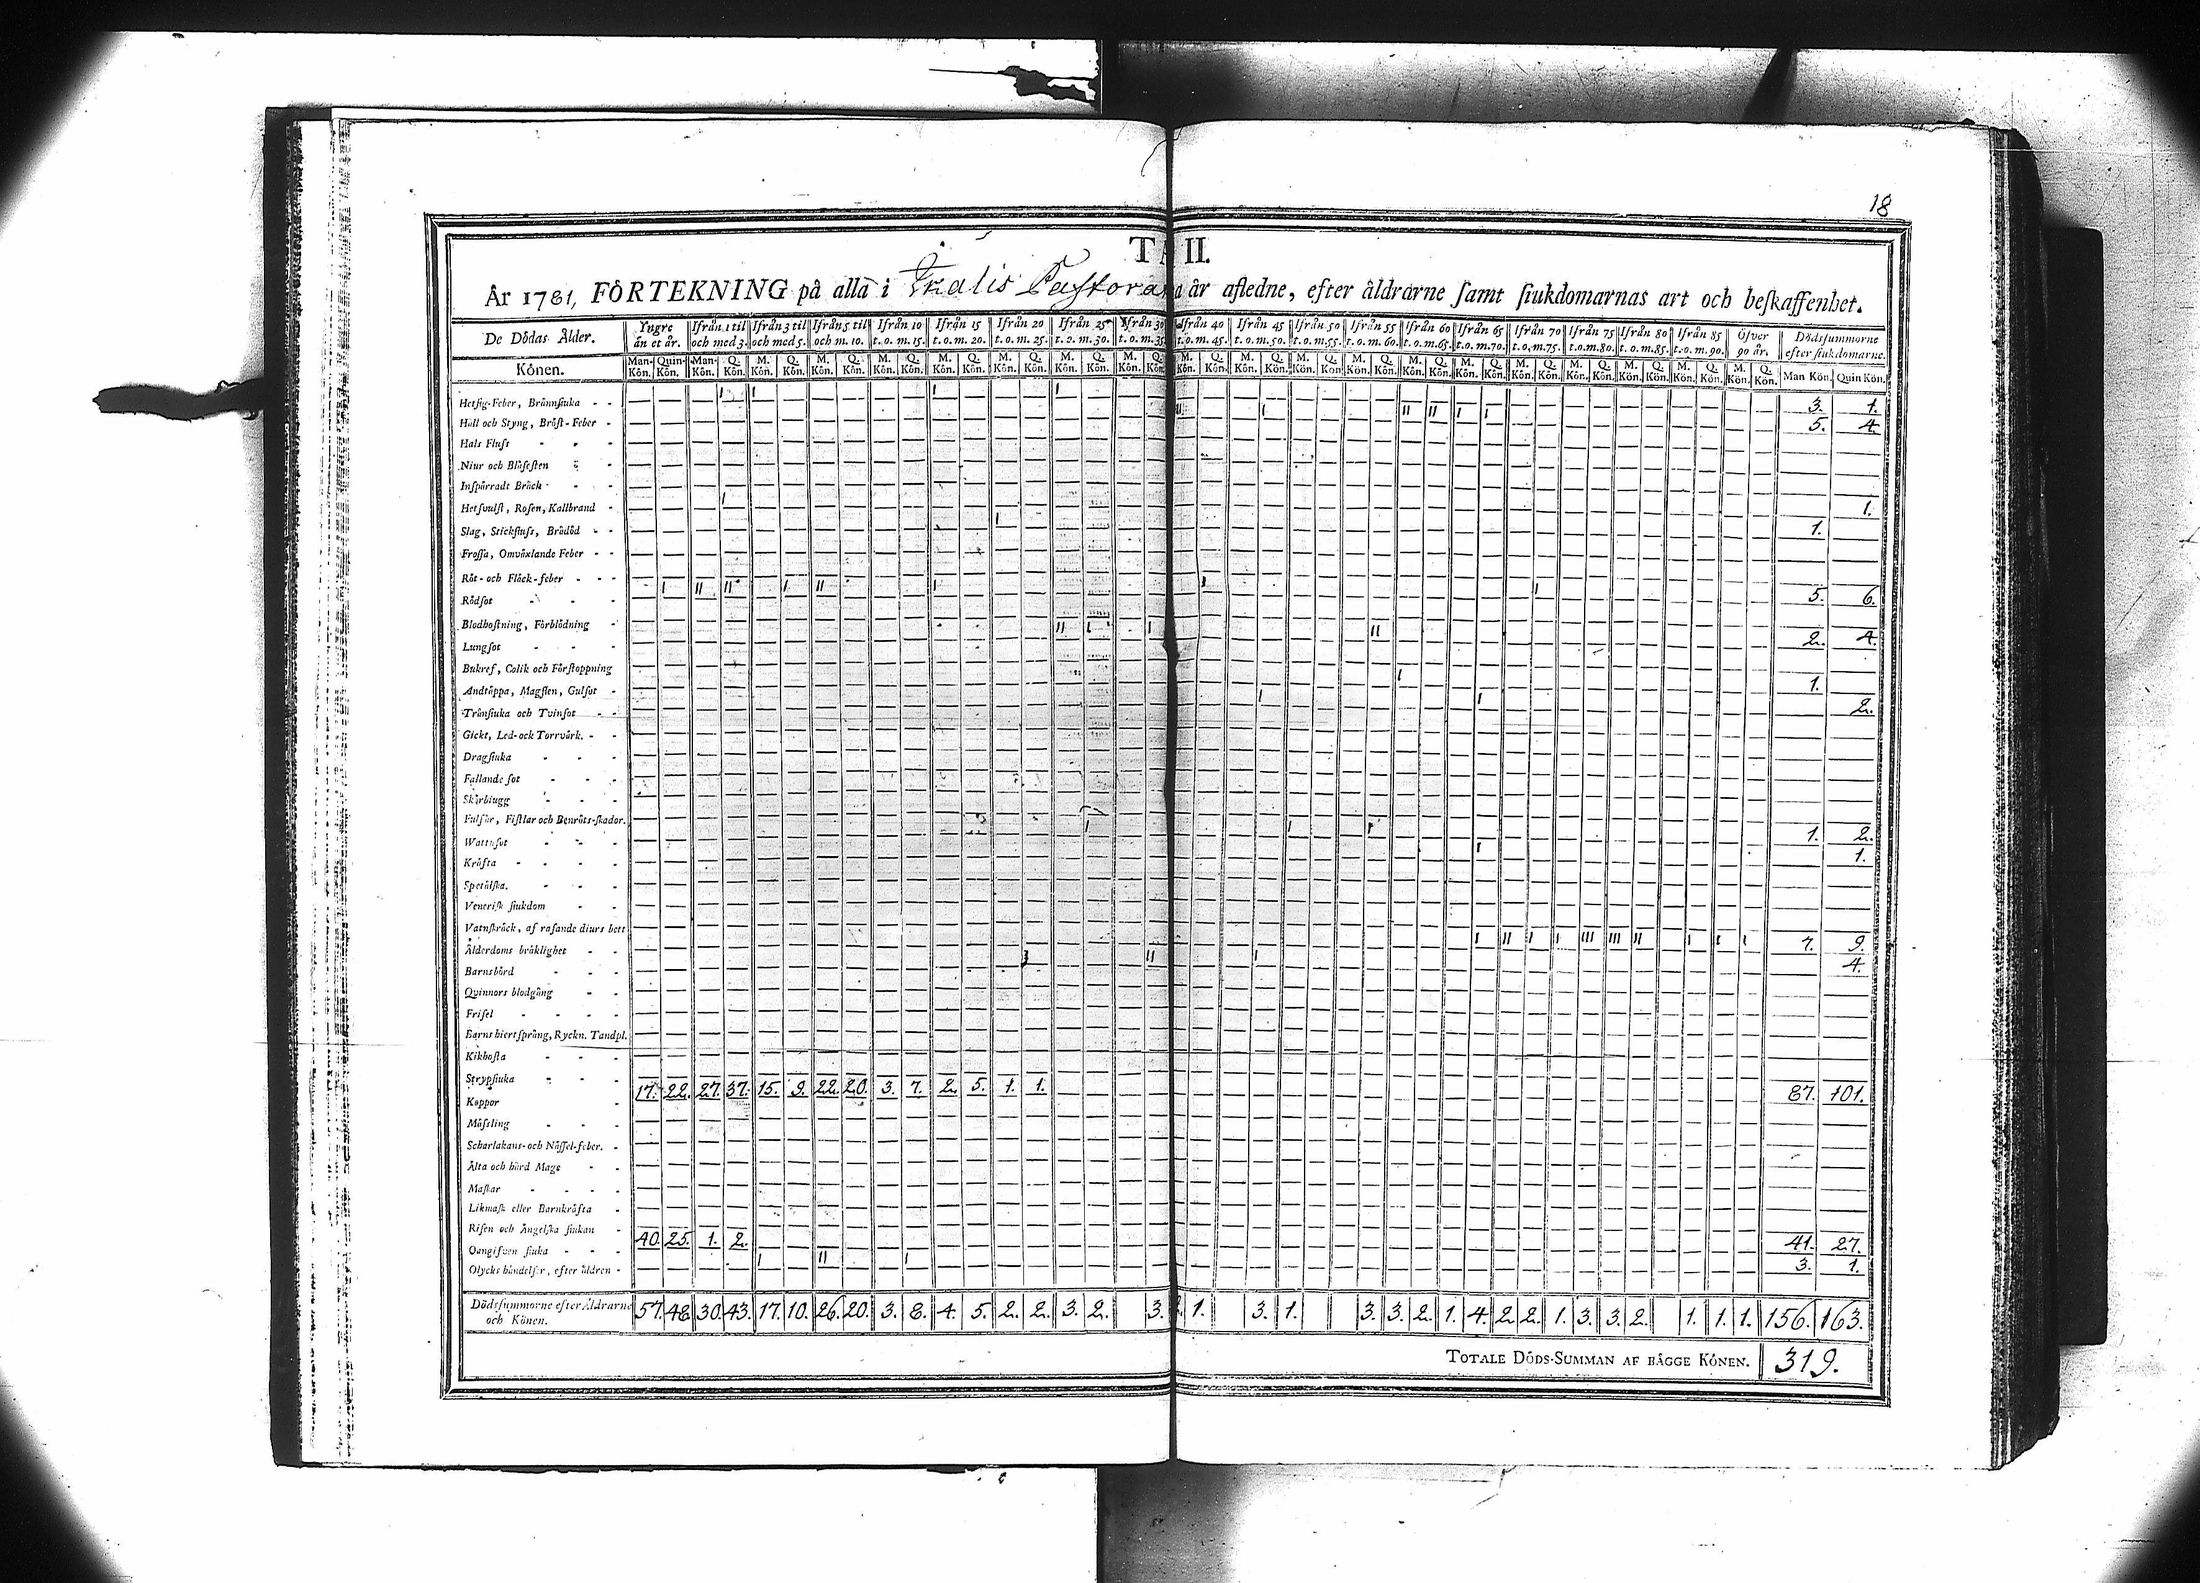 18
TA II.
År 1781, FÖRTEKNING på alla i Ikalis Pastorat år aflidne, efter åldrarne samt siukdomarnas art och beskaffenhet.
De Dödas Ålder. Yngre än et år. Ifrån 1 til och med 3. Ifrån 3 til och med 5. Ifrån 5 til och m. 10. Ifrån 10 t. o. m. 15. Ifrån 15 t. o. m. 20. Ifrån 20 t. o. m. 25. Ifrån 25 t. o. m. 30. Ifrån 30 t. o. m. 35. Ifrån 40 t. o. m. 45. Ifrån 45 t. o. m. 50. Ifrån 50 t. o. m. 55. Ifrån 55 t. o. m. 60. Ifrån 60 t. o. m. 65. Ifrån 65 t. o. m. 70. Ifrån 70 t. o. m. 75. Ifrån 75 t. o. m. 80. Ifrån 80 t. o. m. 85. Ifrån 85 t. o. m. 90. Öfver 90 år. Dödssummorne efter siukdomarne.
Könen. Man-Kön. Quin-Kön. Man-Kön. Q. Kön. M. Kön. Q. Kön. M. Kön. Q. Kön. M. Kön. Q. Kön. M. Kön. Q. Kön. M. Kön. Q. Kön. M. Kön. Q. Kön. M. Kön. Q. Kön. M. Kön. Q. Kön. M. Kön. Q. Kön. M. Kön. Q. Kön. M. Kön. Q. Kön. M. Kön. Q. Kön. M. Kön. Q. Kön. M. Kön. Q. Kön. M. Kön. Q. Kön. M. Kön. Q. Kön. M. Kön. Q. Kön. M. Kön. Q. Kön. Man Kön. Quin Kön.
Hetsig-Feber, Brännsiuka 1 1 1 1 3. 1.
Håll och Styng, Bröst-Feber II 1 II II 1 1 5. 4.
Hals Fluss
Niur och Blåsesten
Inspärradt Bråck
Hetsvulst, Rosen, Kallbrand 1 1.
Slag, Stickfluss, Brådöd 1 1.
Frossa, Omväxlande Feber
Röt- och Fläck-feber
Rödsot 1 II II 1 II 1 1 1 5. 6.
Blodhostning, Förblödning
Lungsot II 1 1 II 2. 4.
Bukref, Colik och Förstoppning
Andtäppa, Magsten, Gulsot 1 1.
Trånsiuka och Tvinsot 1 1 2.
Gickt, Led- och Torrvärk.
Dragsiuka
Fallande sot
Skörbiugg
Fulsår, Fistlar och Benröts-skador.
Wattusot 1 1 1 1. 2.
Kräfta 1 1.
Spetälska.
Venerisk siukdom
Vatnskräck, af rasande diurs bett
Ålderdoms bräklighet 1 II 1 1 III III II 1 1 1 7. 9.
Barnsbörd 1 II 1 4.
Qvinnors blodgång
Frisel
Barns hiertsprång, Ryckn. Tandpl.
Kikhosta
Strypsiuka
Koppor 17. 22. 27. 37. 15. 9. 22. 20. 3. 7. 2. 5. 1. 1. 87. 101.
Mässling
Scharlakans- och Nässel-feber.
Älta och hård Mage
Maskar
Likmask eller Barnkräfta
Risen och Ängelska siukan
Oangifven siuka 40. 25. 1. 2. 41. 27.
Olycks händelser, efter åldren 1 II 1 3. 1.
Dödssummorne efter Åldrarne och Könen. 57. 48. 30. 43. 17. 10. 26. 20. 3. 8. 4. 5. 2. 2. 3. 2. 3. 2. 1. 3. 1. 3. 3. 2. 1. 4. 2. 2. 1. 3. 3. 2. 1. 1. 1. 156. 163.
TOTALE DÖDS-SUMMAN AF BÄGGE KÖNEN. 319.